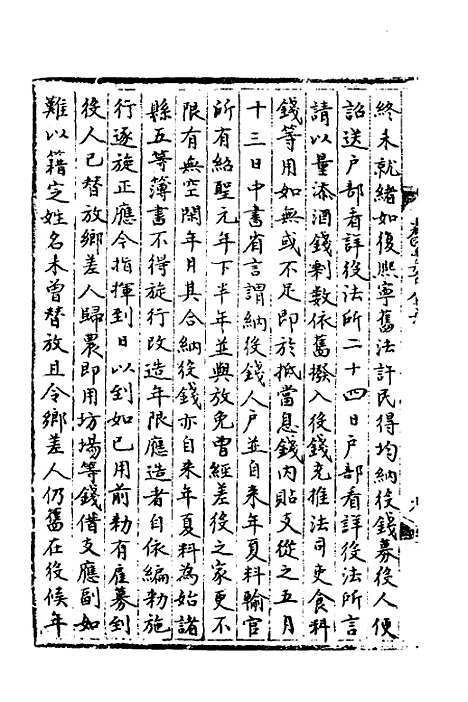 終未就緒如復熙寧舊法許民得均納役錢募役人便
詔送户部看詳役法所二十四日户部看詳役法所言
請以量添酒錢剩數依舊撥入役錢充推法司吏食料
錢等用如無或不足即於抵當息錢内貼支從之五月
十三日中書省言謂納役錢人户並自来年夏料輸官
所有紹聖元年下半年並與放免曾經差役之家更不
限有無空閑年月其合納役錢亦自来年夏料為始諸
縣五等簿書不得旋行改造年限應造者自依編勅施
行逐旋正應令指揮到日以到如已用前勅有雇募到
役人已替放鄉差人歸農即用坊場等錢借支應副如
難以籍定姓名未曾替放且令鄉差人仍舊在役候年